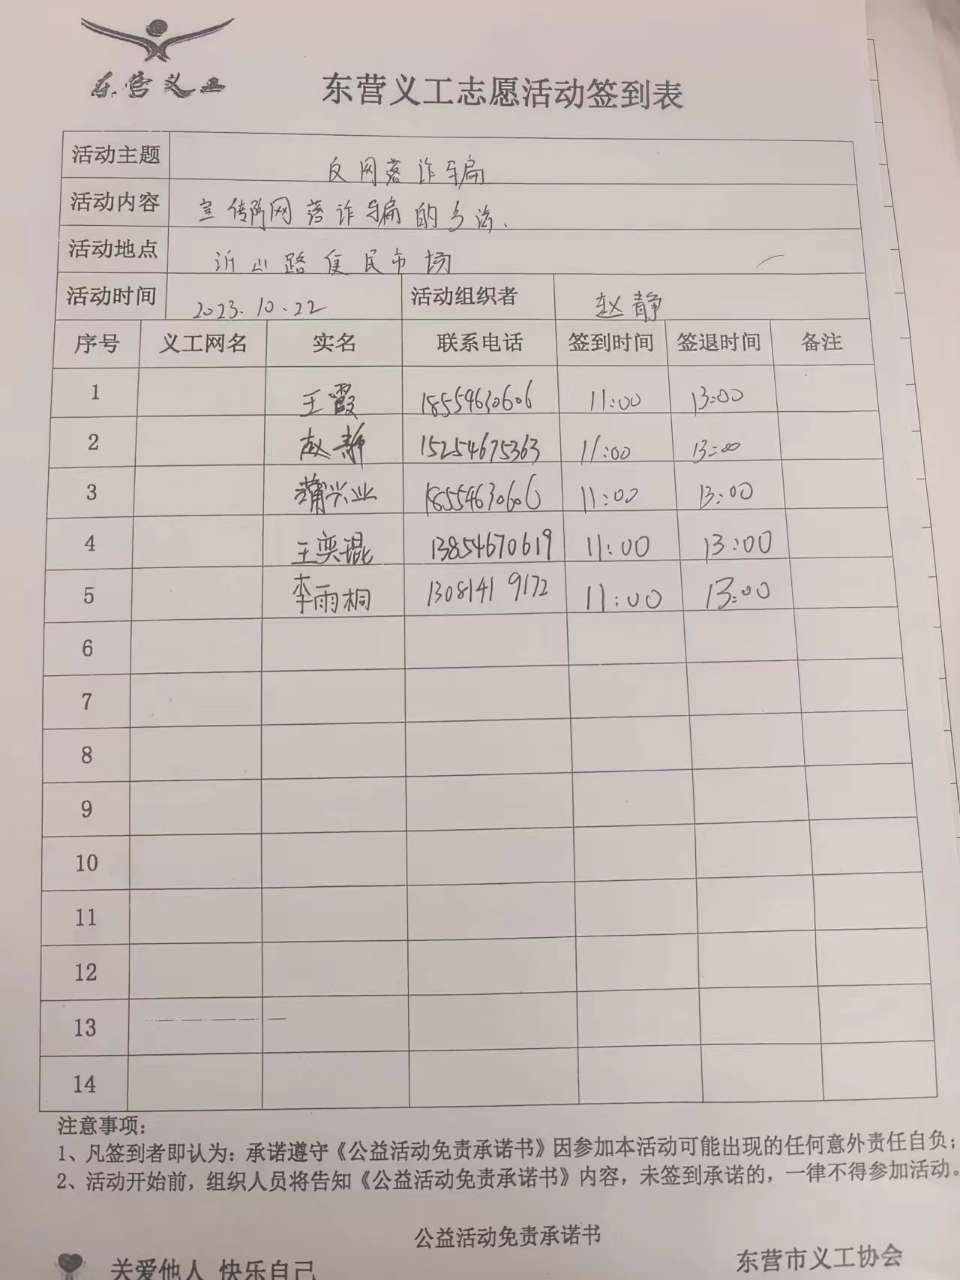 东营义工
东营义工志愿活动签到表
活动主题 反网落诈骗
活动内容 宣传防网落诈骗的方法.
活动地点 沂山路便民市场
活动时间 2023.10.22 活动组织者 赵静
序号 义工网名 实名 联系电话 签到时间 签退时间 备注
1 王霞 18554630606 11:00 13:00
2 赵静 15254675363 11:00 13:00
3 蒲兴业 18554630606 11:00 13:00
4 王奕琨 13854670619 11:00 13:00
5 李雨桐 1308141 9172 11:00 13:00
6
7
8
9
10
11
12
13
14
注意事项:
1、凡签到者即认为: 承诺遵守《公益活动免责承诺书》因参加本活动可能出现的任何意外责任自负;
2、活动开始前, 组织人员将告知《公益活动免责承诺书》内容, 未签到承诺的, 一律不得参加活动。
公益活动免责承诺书
关爱他人 快乐自己
东营市义工协会